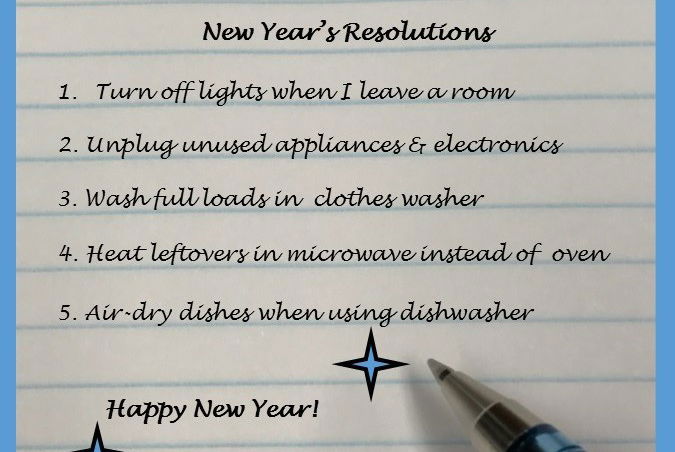 New Year's Resolutions
1. Turn off lights when I leave a room
2. Unplug unused appliances & electronics
3. Wash full loads in clothes washer
4. Heat leftovers in microwave instead of oven
5. Air-dry dishes when using dishwasher
Happy New Year!